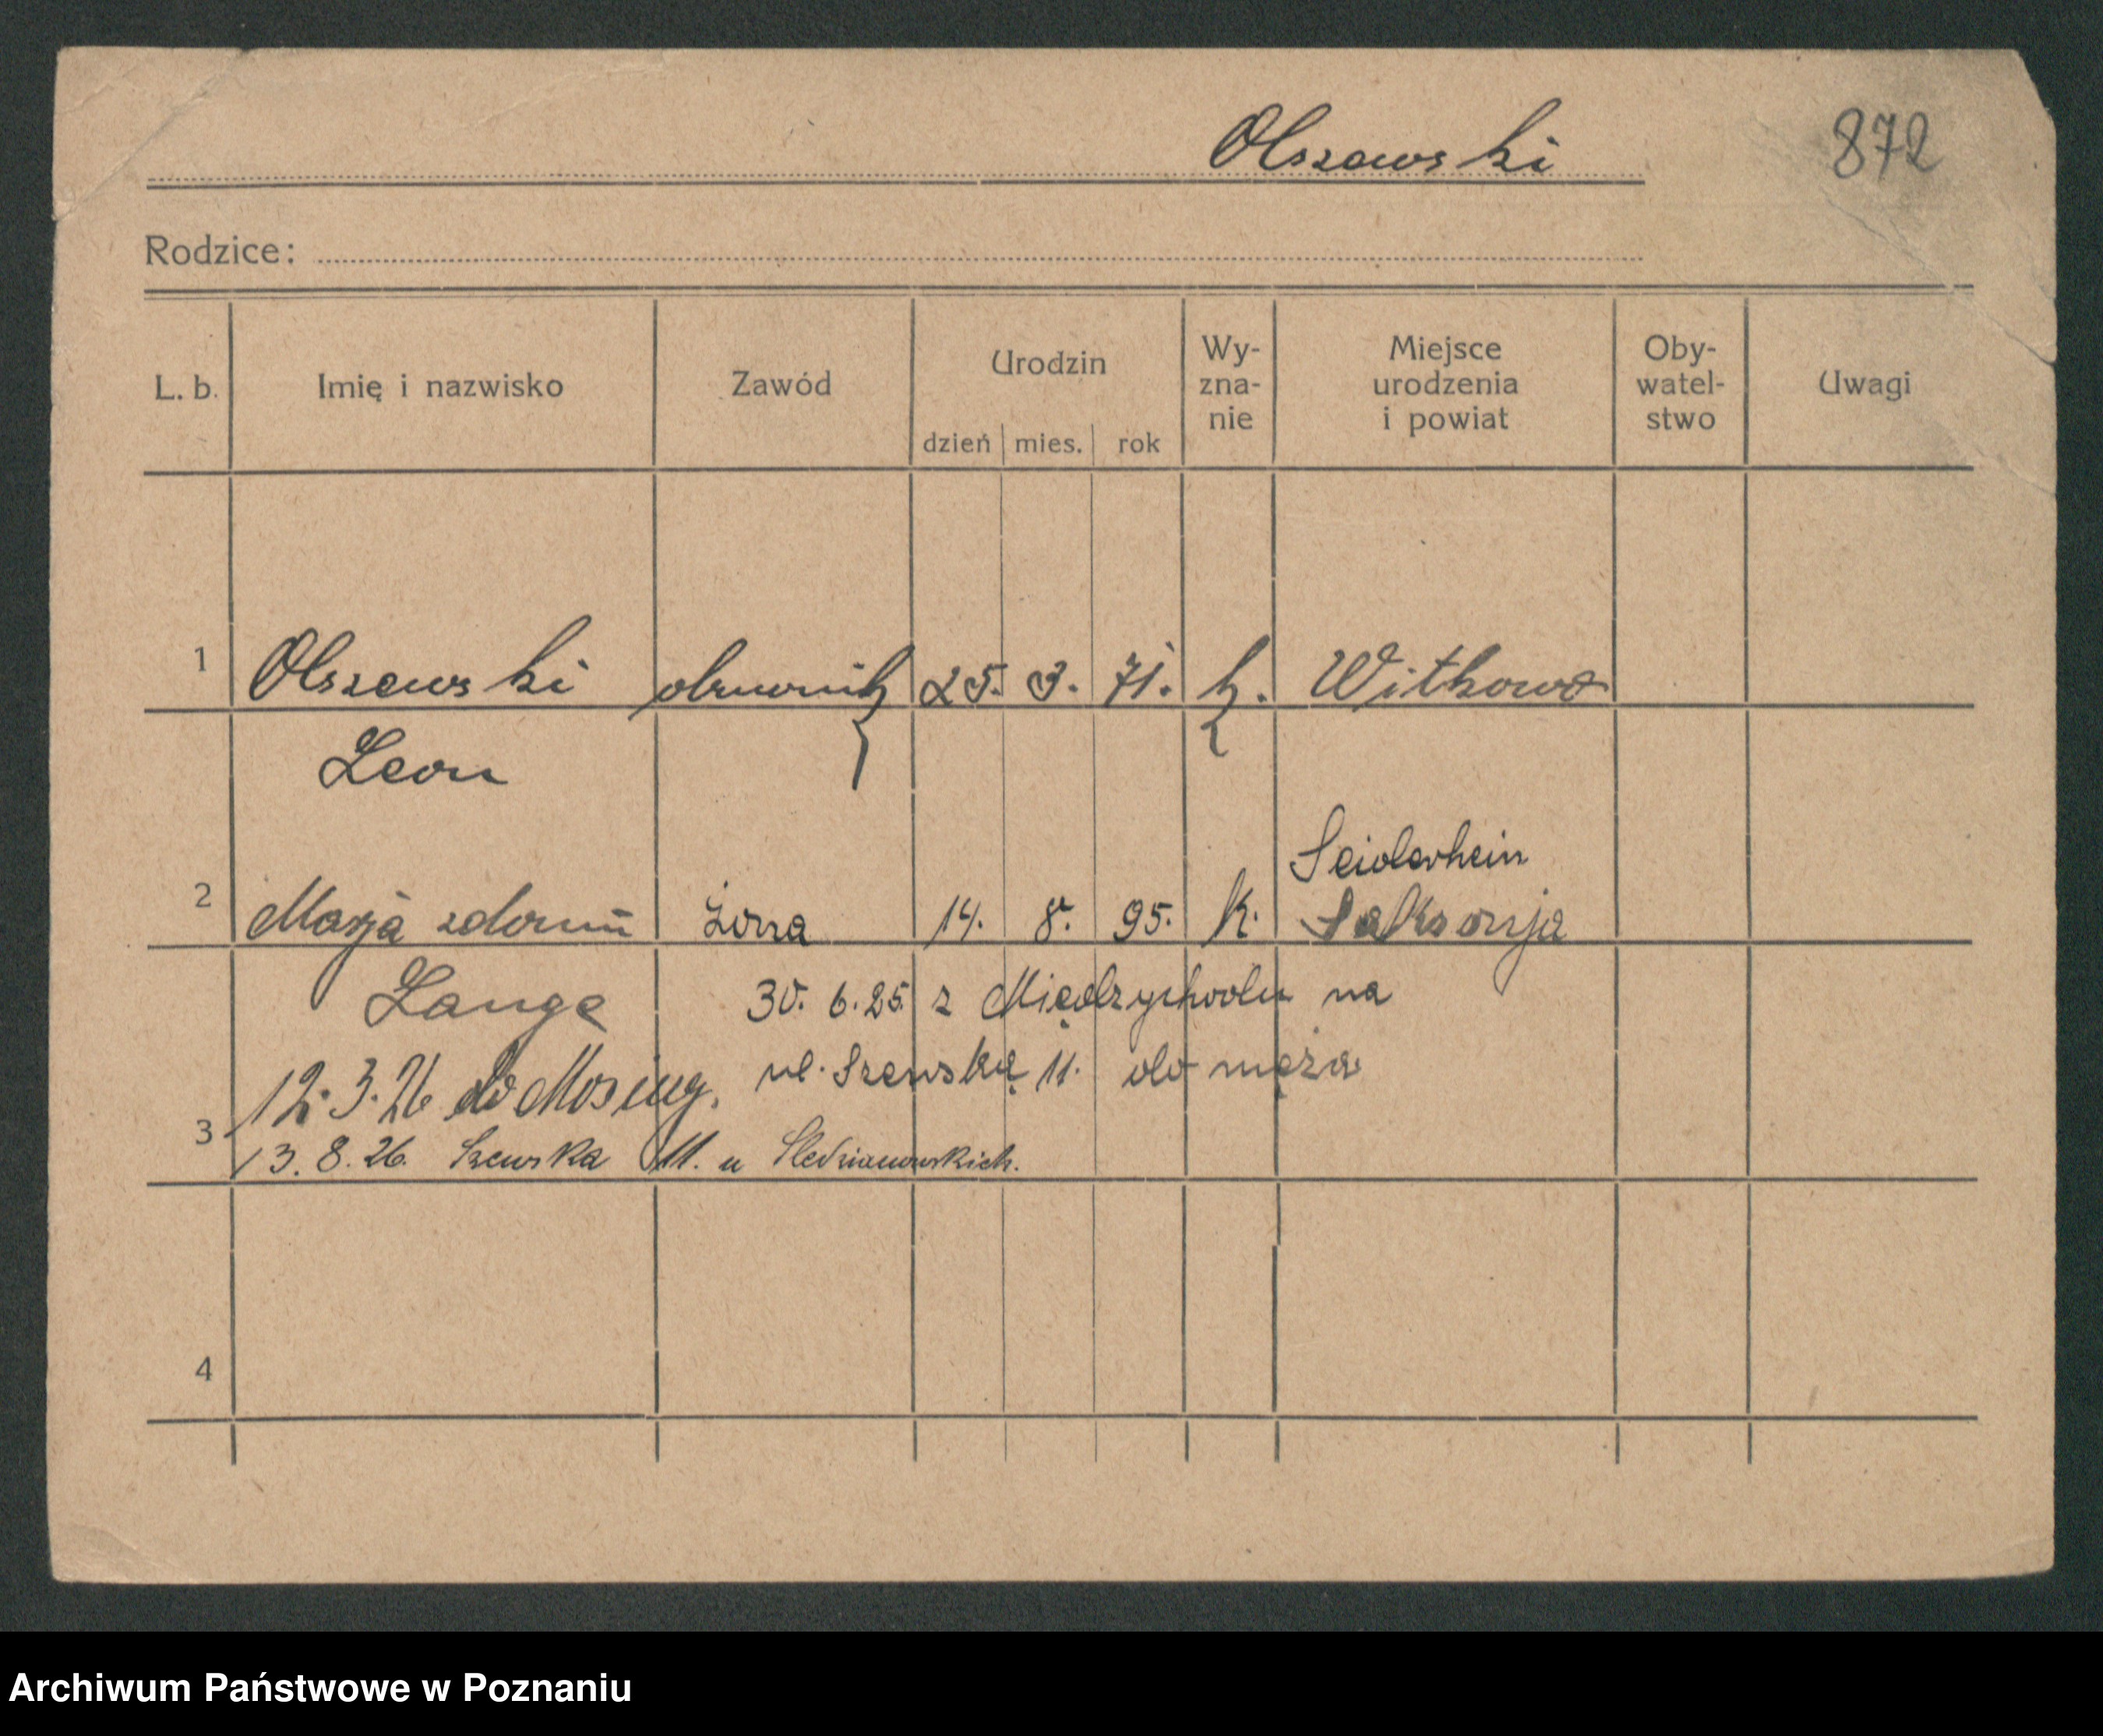 Olszewski 872
Rodzice:
L. b. Imię i nazwisko Zawód Urodzin dzień mies. rok Wy-zna-nie Miejsce urodzenia i powiat Oby-watel-stwo Uwagi
1 Olszewski 25. 3. 71. k. Witkowo
Leon
Seiderhein
2 Marja z dom żona 14. 8. 95. k. Saksonja
Lange 30. 6. 25. z Międzychodu na
ul. Szewską 11. do męża
12. 3. 26 do Mosiny.
3
13. 8. 26. Szewska 11. u
4
Archiwum Państwowe w Poznaniu